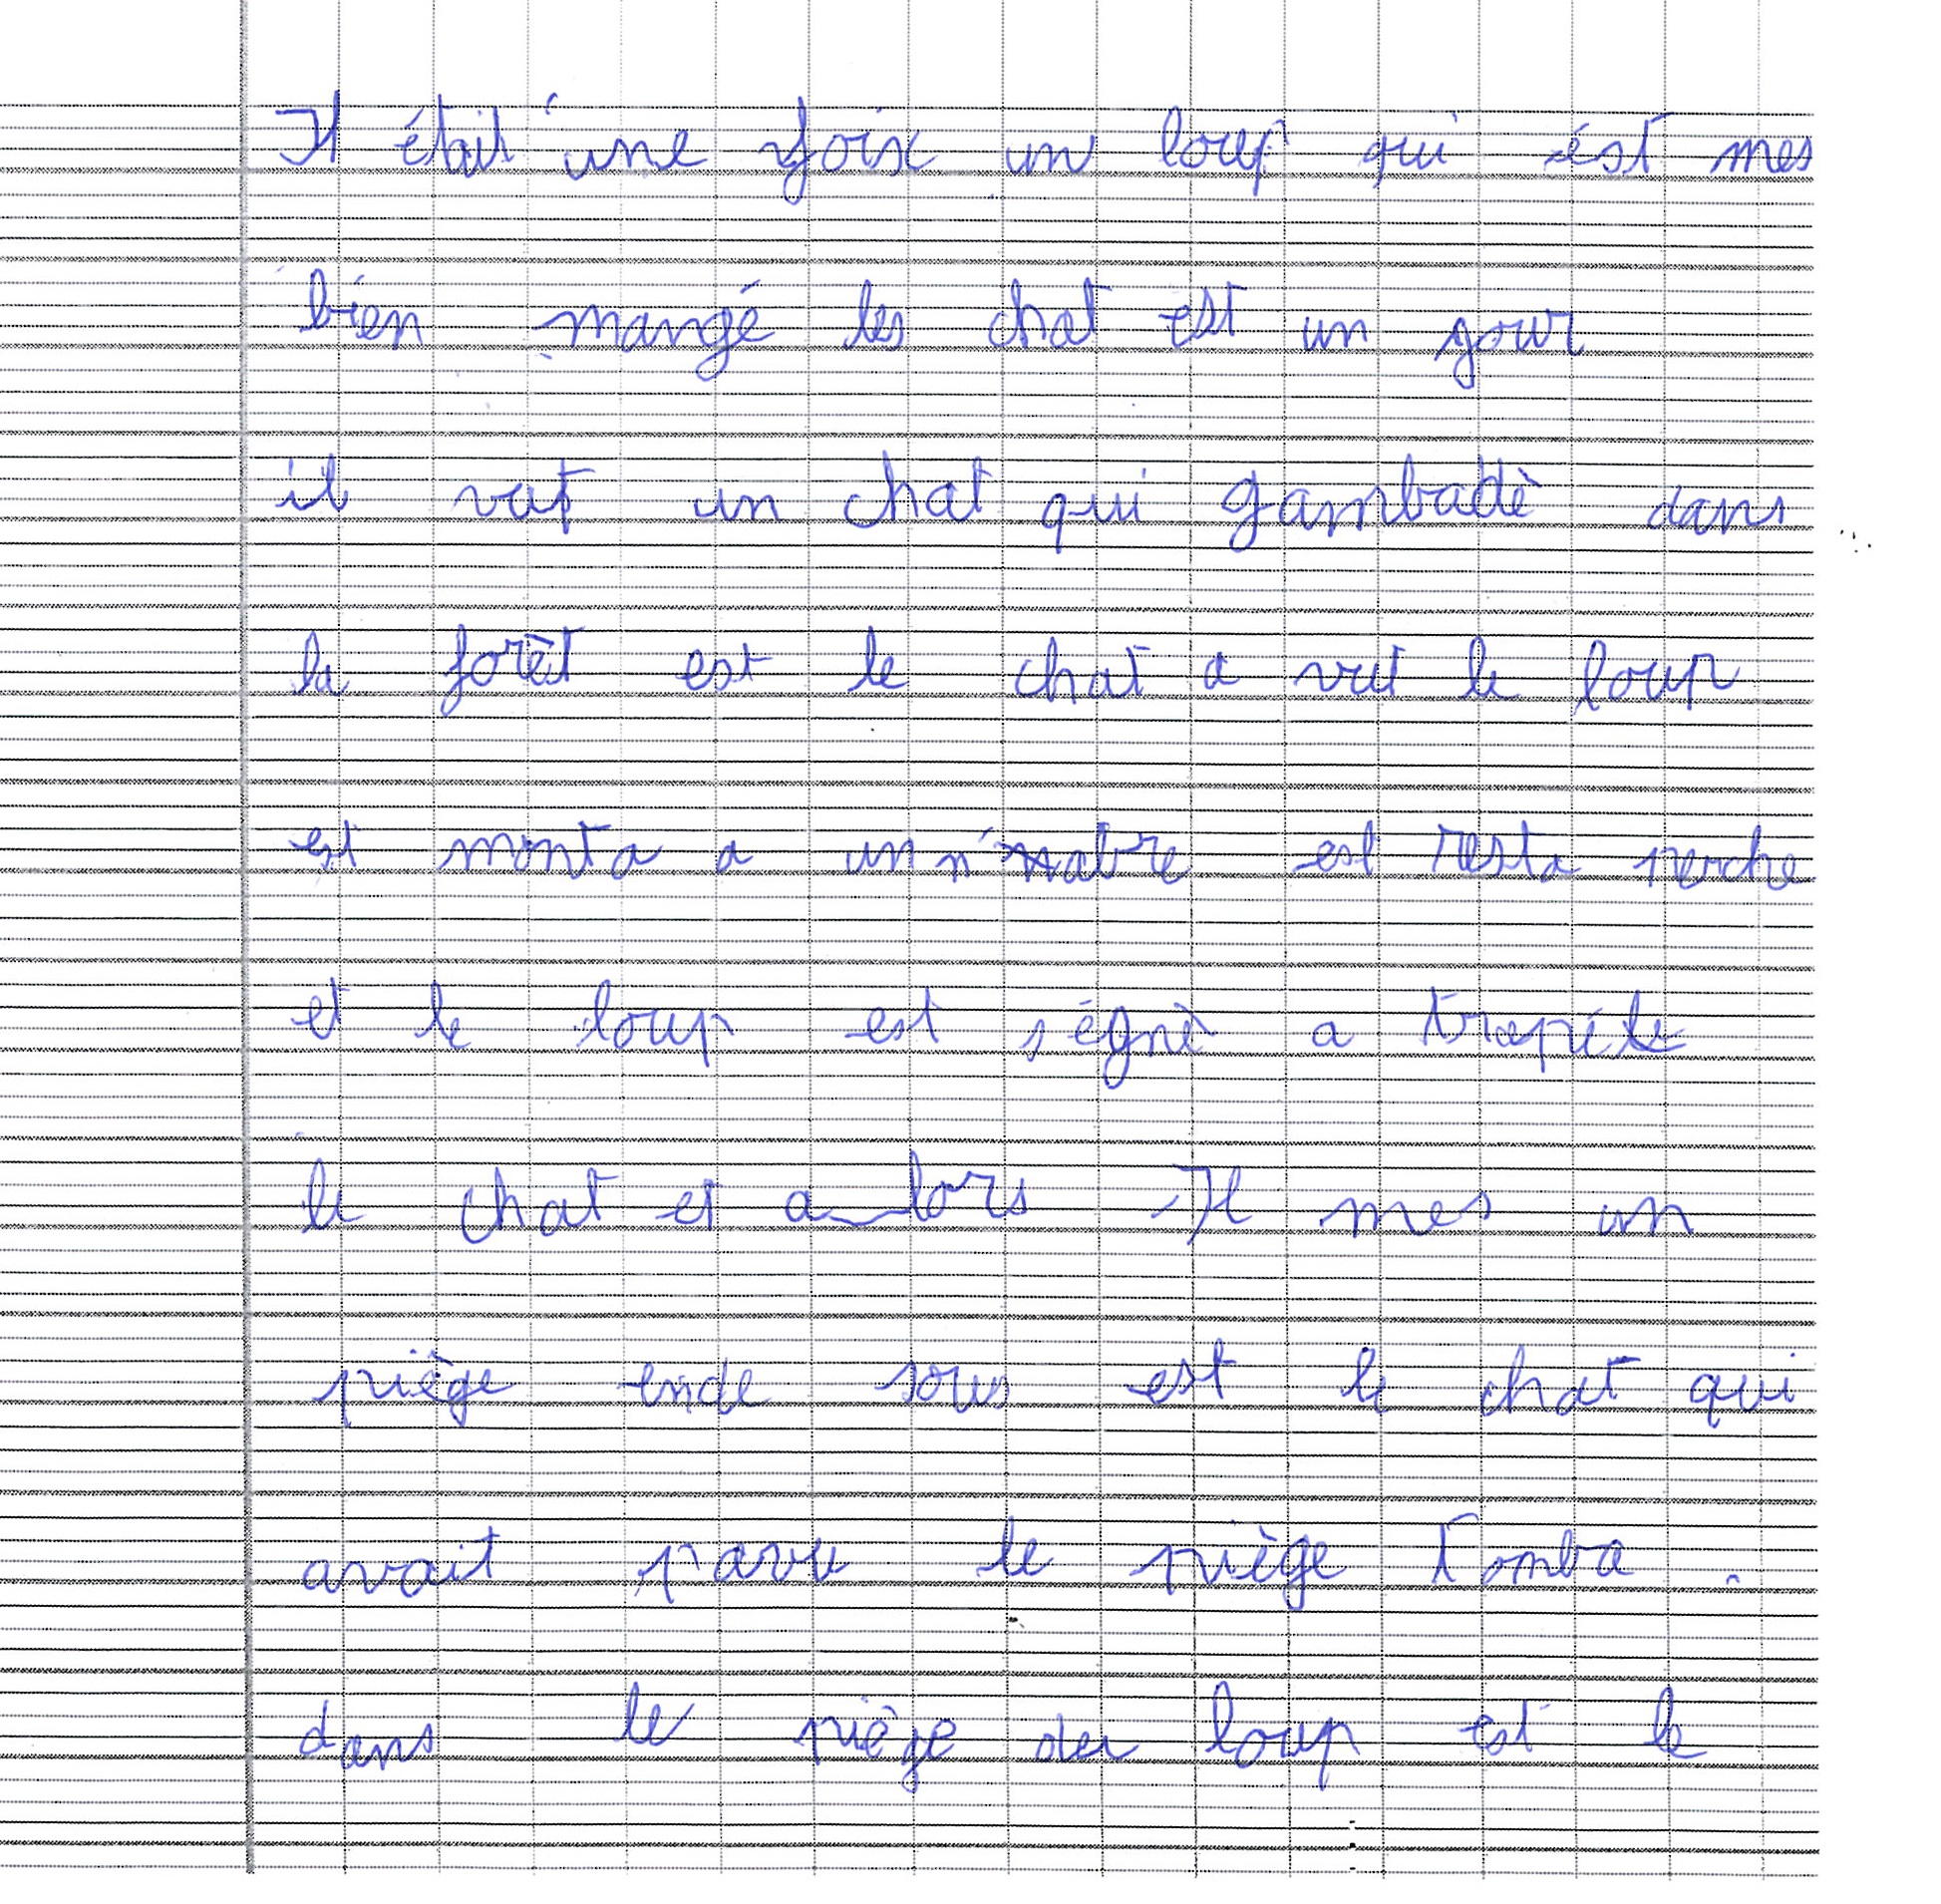 Il était une foix un loup qui ést mes
bien mangé les chat est un jour
il vat un chat qui gambadè dans
la forêt est le chat a vut le loup
est monta a un n'abre est resta perche
et le loup est ségnè a trapéle
le chat et a lors Il mes un
piège ende sous est le chat qui
avait pavu le piège tomba .
dans le piège du loup est le